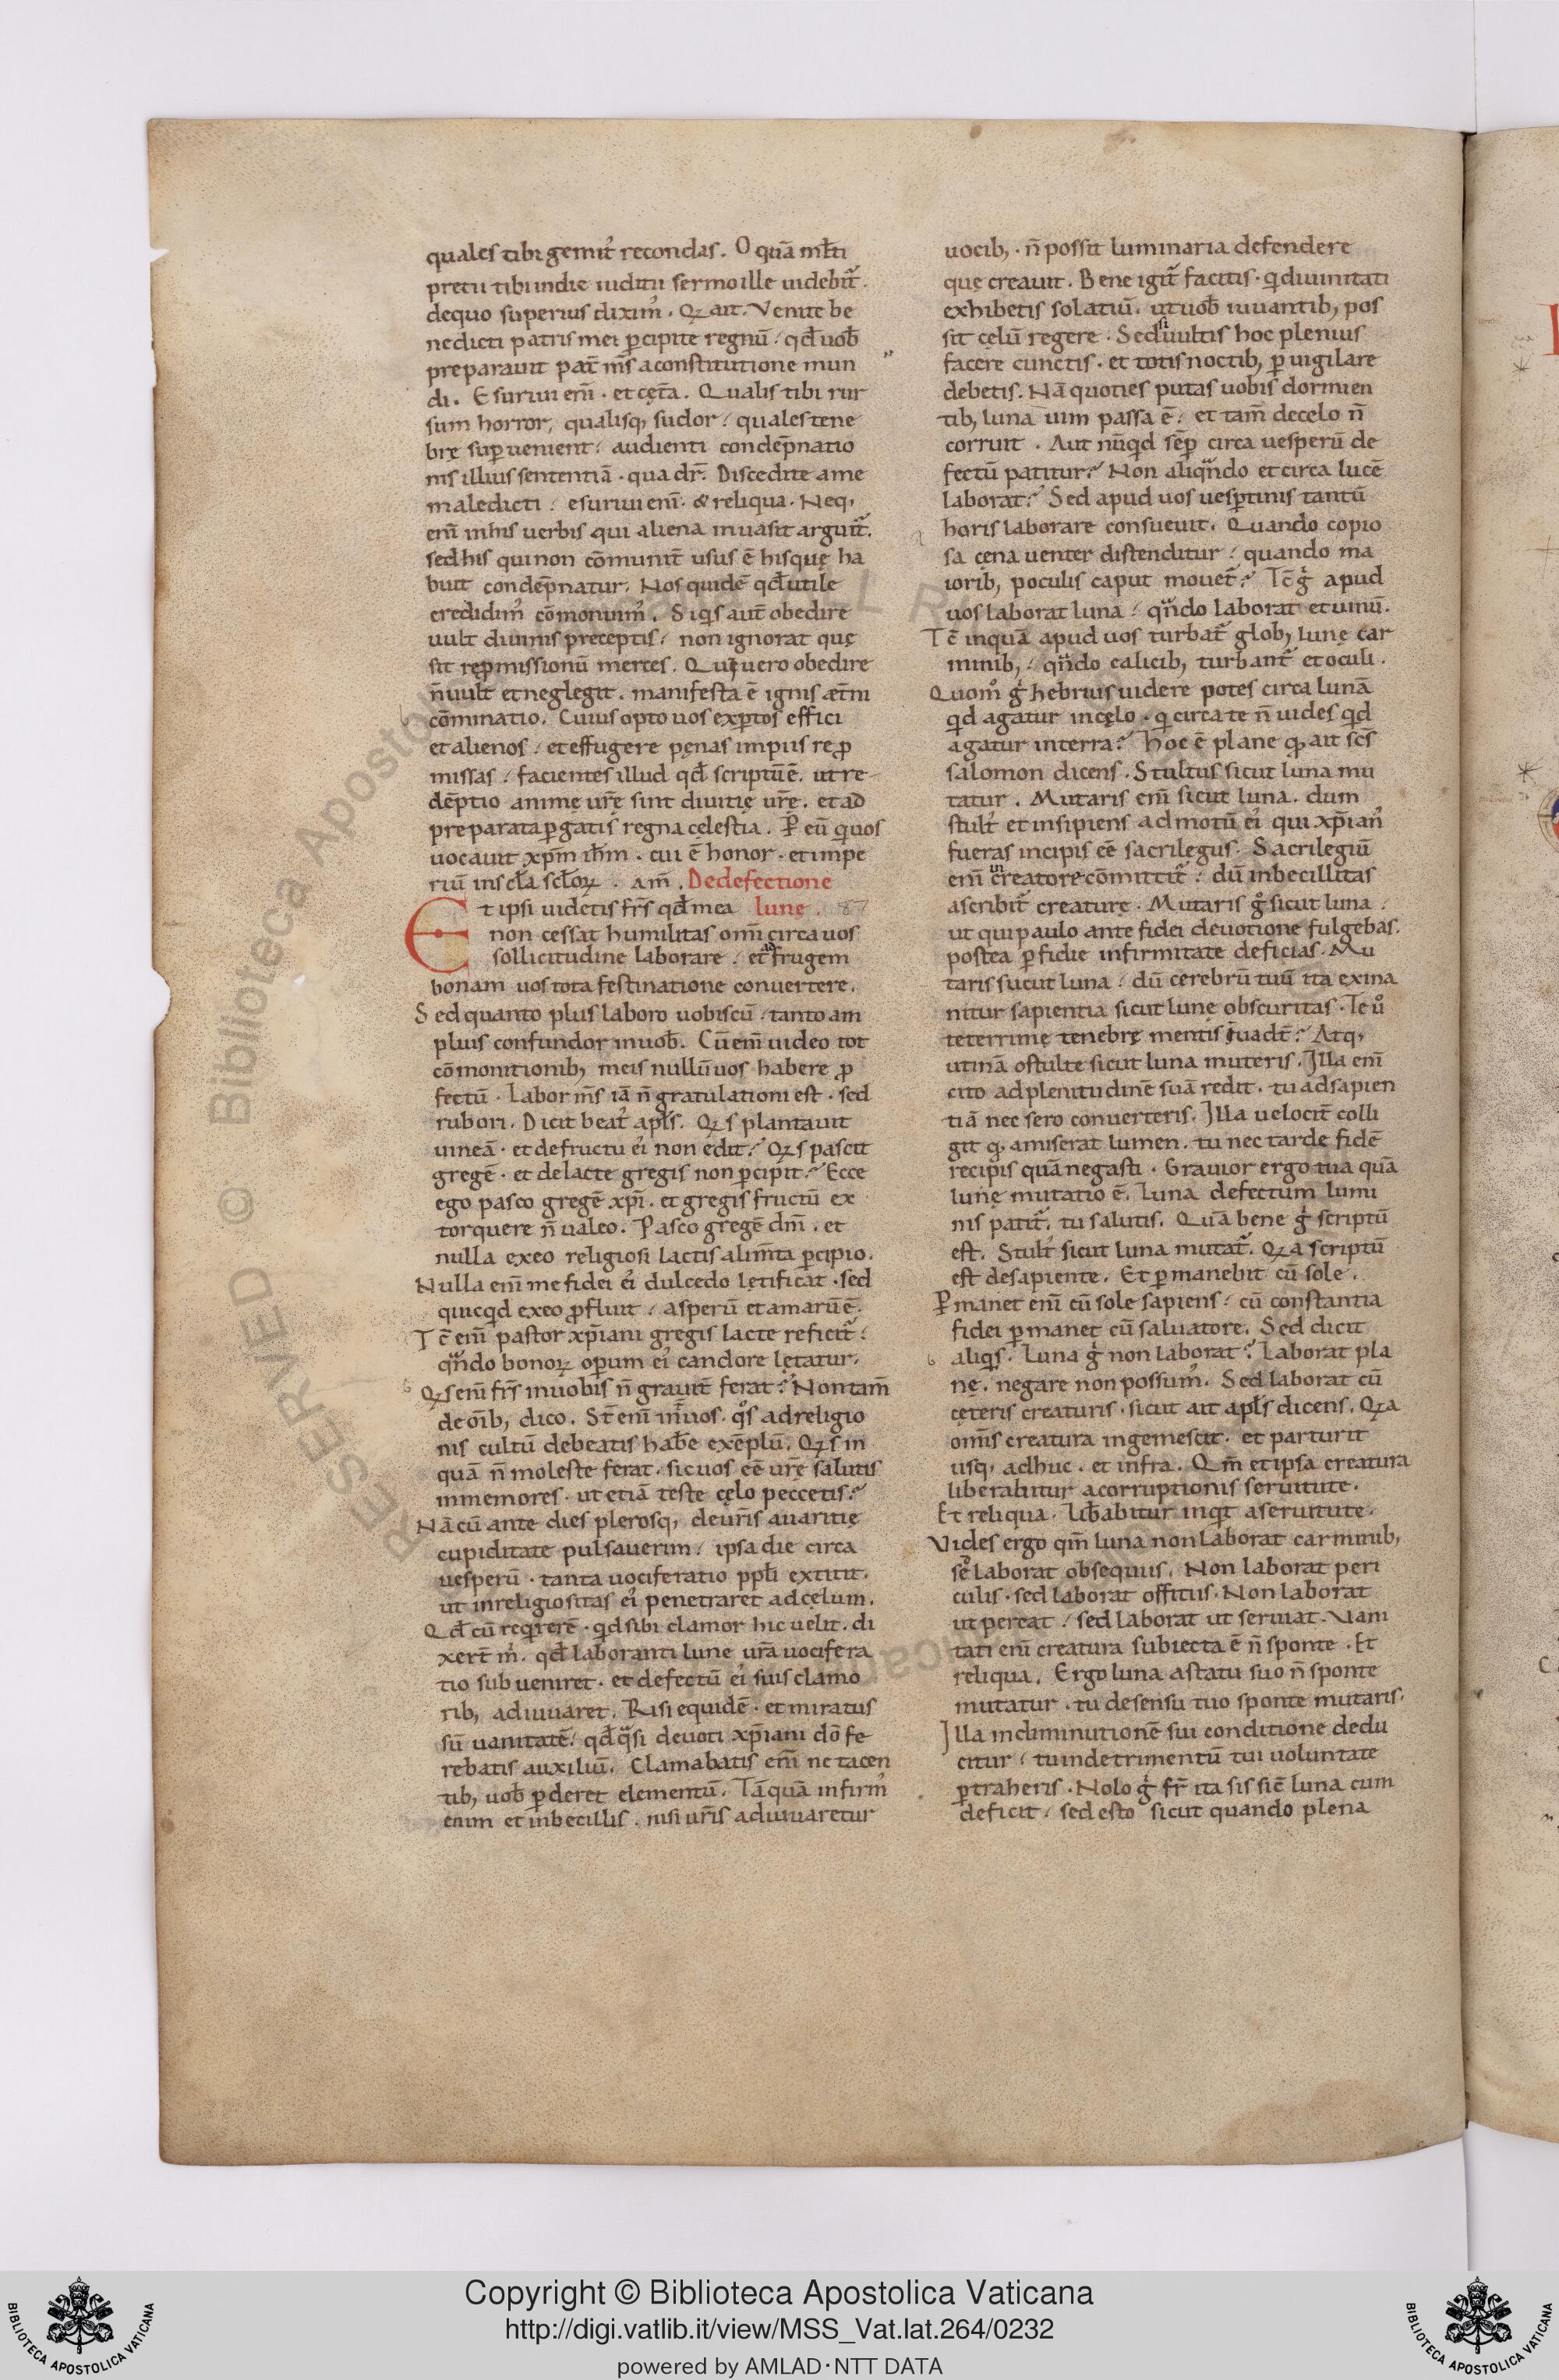 quales tibi gemit᷒ recondas. O quā ml̄ti
pretii tibi in die iudicii sermo ille uidebit᷑.
de quo superius dixim᷒. Qꝛ ait. Venite be
nedicti patris mei ꝑcipite regnū / qd̄ uob̄
preparauit pat̄ m̄s a constitutione mun
di. Esuriui eni̅ · et cęt̄a. Qualis tibi rur
sum horror, qualisq, sudor / quales tene
brę suꝑuenient / audienti condēpnatio
nis illius sententiā · qua dr̄. Discedite a me
maledicti / esuriui eni̅ · & reliqua. Neq,
eni̅ in his uerbis qui aliena inuasit arguit᷑.
sed his qui non cōmunit̄ usus ē hisquę ha
buit condēpnatur. Nos quidē qd̄ utile
credidim᷒ cōmonuim᷒. Siqͥs aut̄ obedire
uult diuinis preceptis / non ignorat quę
sit reꝓmissionū merces. Qui uero obedire
n̄ uult et neglegit. manifesta ē ignis æt̄ni
cōminatio. Cuius opto uos exꝑtos effici
et alienos / et effugere pęnas impiis reꝓ
missas / facientes illud qd̄ scriptū ē. ut re-
dēptio animę ur̄ę sint diuitię ur̄ę. et ad
preparata ꝑgatis regna cęlestia. P̄ eū qui uos
uocauit xp̄m ih̄m · cui ē honor · et impe
riū in scl̄a scl̄oꝝ . am̄. De defectione
Et ipsi uidetis fr̄s qd̄ mea lunę. 87
non cessat humilitas omi̅ circa uos
sollicitudine laborare / et ad frugem
bonam uos tota festinatione conuertere.
Sed quanto plus laboro uobiscū / tanto am
plius confundor in uob̄. Cū eni̅ uideo tot
cōmonitionib, meis nullū uos habere ꝓ
fectū · Labor m̄s iā n̄ gratulationi est · sed
rubori. Dicit beat᷒ apl̄s. Qꝛs plantauit
uineā · et de fructu ei᷒ non edit? Qꝛs pascit
gregē · et de lacte gregis non ꝑcipit? Ecce
ego pasco gregē xpi̅. et gregis fructū ex
torquere n̄ ualeo. Pasco gregē dni̅. et
nulla ex eo religiosi lactis alim̄ta ꝑcipio.
Nulla eni̅ me fidei ei᷒ dulcedo lętificat · sed
quicqͥd ex eo ꝓfluit / asperū et amarū ē.
Tc̄ eni̅ pastor xp̄iani gregis lacte reficit᷑ /
qͣndo bonoꝝ operum ei᷒ candore lętatur.
Qꝛs eni̅ fr̄s in uobis n̄ grauit̄ ferat? Non tam̄
de oi̅b, dico. St̄ eni̅ int̄ uos · qͦs ad religio
nis cultū debeatis hab̄e exēplū. Qꝛs in
quā n̄ moleste ferat · sic uos eē ur̄ę salutis
inmemores · ut etiā teste cęlo peccetis?
Nā cū ante dies plerosq, de ur̄is auaritię
cupiditate pulsauerim / ipsa die circa
uesperū · tanta uociferatio ppl̄i extitit.
ut inreligiositas ei᷒ penetraret ad cęlum.
Qd̄ cū reqͥrerē · qͥd sibi clamor hic uelit. di
xert̄ m̍. qd̄ laboranti lune ur̄a uocifera
tio subueniret · et defectū ei᷒ suis clamo
rib, adiuuaret. Risi equidē · et miratus
sū uanitatē / qd̄ qͣsi deuoti xp̄iani dō fe
rebatis auxiliū. Clamabatis eni̅ ne tacen
tib, uob̄ ꝑderet elementū. Tāquā infirm᷒
enim et inbecillis. nisi ur̄is adiuuaretur
uocib, · n̄ possit luminaria defendere
quę creauit. Bene igit᷑ facitis · qi diuinitati
exhibetis solatiū. ut uob̄ iuuantib, pos
sit cęlū regere. Sed si uultis hoc plenius
facere cunctis · et totis noctib, ꝑuigilare
debetis. Nā quoties putas uobis dormien
tib, luna uim passa ē / et tam̄ de celo n̄
corruit . Aut nūqͥd sēꝑ circa uesperū de
fectū patitur? Non aliqͣndo et circa lucē
laborat? Sed apud uos uesꝑtinis tantū
horis laborare consueuit. Quando copio
sa cęna uenter distenditur / quando ma
iorib, poculis caput mouet᷑? Tc̄ gͦ apud
uos laborat luna / qͣndo laborat et uinū.
Tc̄ inquā apud uos turbat᷑ glob᷒ lunę car
minib, / qͣndo calicib, turbant᷑ et oculi.
Quom̊ gͦ hebrius uidere potes circa lunā
qͥd agatur in cęlo · qi circa te n̄ uides qͥd
agatur in terra? Hoc ē plane qͦ ait scs̄
salomon dicens. Stultus sicut luna mu
tatur. Mutaris eni̅ sicut luna. dum
stult᷒ et insipiens ad motū ei᷒ qui xp̄ian᷒
fueras incipis eē sacrilegus. Sacrilegiū
eni̅ in creatore cōmittit᷑ / dū inbecillitas
ascribit᷑ creaturę. Mutaris gͦ sicut luna /
ut qui paulo ante fidei deuotione fulgebas.
postea ꝑfidie infirmitate deficias. Mu
taris sicut luna / dū cerebrū tuū ita exina
nitur sapientia sicut lunę obscuritas. Te u̅
teterrimę tenebrę mentis inuadt̄? Atq,
utinā o stulte sicut luna muteris. Illa eni̅
cito ad plenitudinē suā redit · tu ad sapien
tiā nec sero conuerteris. Illa uelocit̄ colli
git qͦ amiserat lumen. tu nec tarde fidē
recipis quā negasti. Grauior ergo tua quā
lunę mutatio ē. Luna defectum lumi
nis patit᷑. tu salutis. Quā bene gͦ scriptū
est. Stult᷒ sicut luna mutat᷑. Qꝛa scriptū
est de sapiente. Et ꝑmanebit cū sole.
P̄manet eni̅ cū sole sapiens / cū constantia
fidei ꝑmanet cū saluatore. Sed dicit
aliqͥs. Luna gͦ non laborat? Laborat pla
nę. negare non possum᷒. Sed laborat cū
cęteris creaturis · sicut ait apl̄s dicens. Qꝛa
omi̅s creatura ingemescit · et parturit
usq, adhuc · et infra. Qm̄ et ipsa creatura
liberabitur a corruptionis seruitute.
Et reliqua. Lib̄abitur inqͥt a seruitute.
Vides ergo qm̄ luna non laborat carminib,
sꝫ laborat obsequiis. Non laborat peri
culis · sed laborat offitiis. Non laborat
ut pereat / sed laborat ut seruiat. Vani
tati eni̅ creatura subiecta ē n̄ sponte. Et
reliqua. Ergo luna a statu suo n̄ sponte
mutatur · tu de sensu tuo sponte mutaris.
Illa in diminutionē sui conditione dedu
citur / tu in detrimentū tui uoluntate
ꝑtraheris. Nolo gͦ fr̄ ita sis sic̄ luna cum
deficit / sed esto sicut quando plena
Copyright © Biblioteca Apostolica Vaticana
http://digi.vatlib.it/view/MSS_Vat.lat.264/0232
powered by AMLAD·NTT DATA
BIBLIOTECA APOSTOLICA VATICANA
BIBLIOTECA APOSTOLICA VATICANA